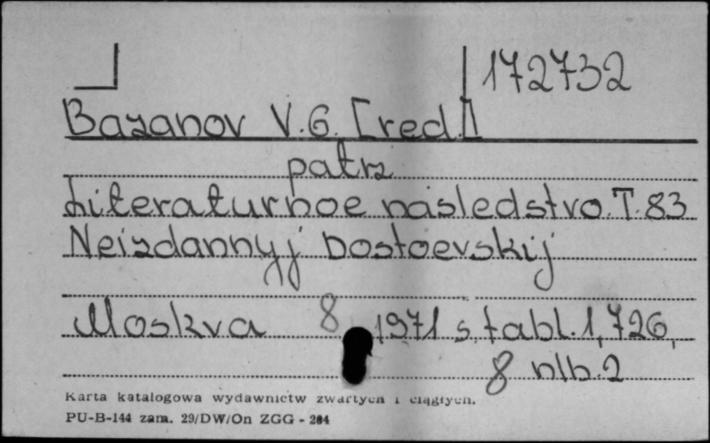 172732
Bazanov V.G. [red.]
patrz
Literaturnoe nasledstvo. T. 83
Neizdannyj Dostoevskij
Moskva 8 1971 s. tabl. 1, 726,
8 nlb. 2
Karta katalogowa wydawnictw zwartych i ciągłych.
PU-B-144 zam. 29/DW/On ZGG - 284